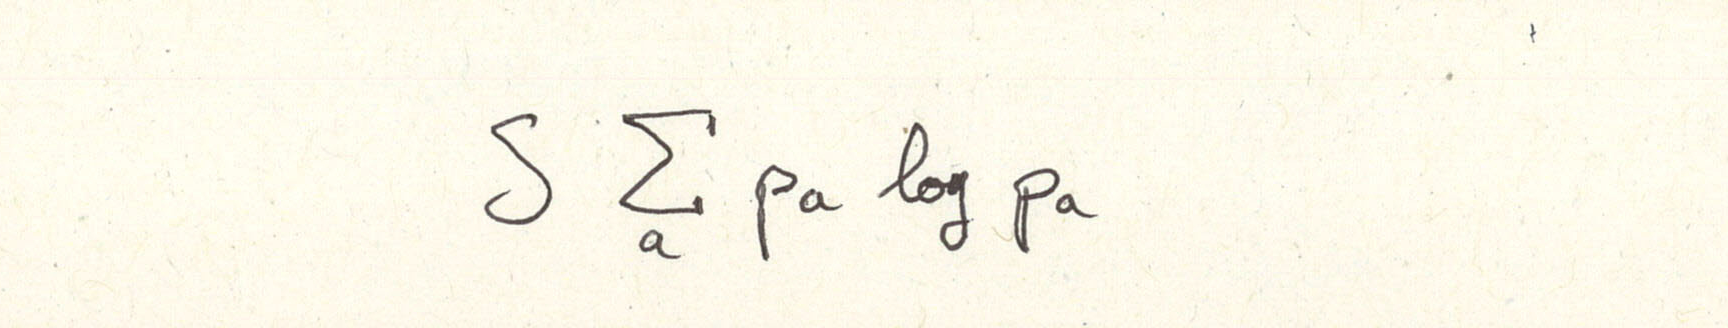 S ∑ₐ pₐ log pₐ